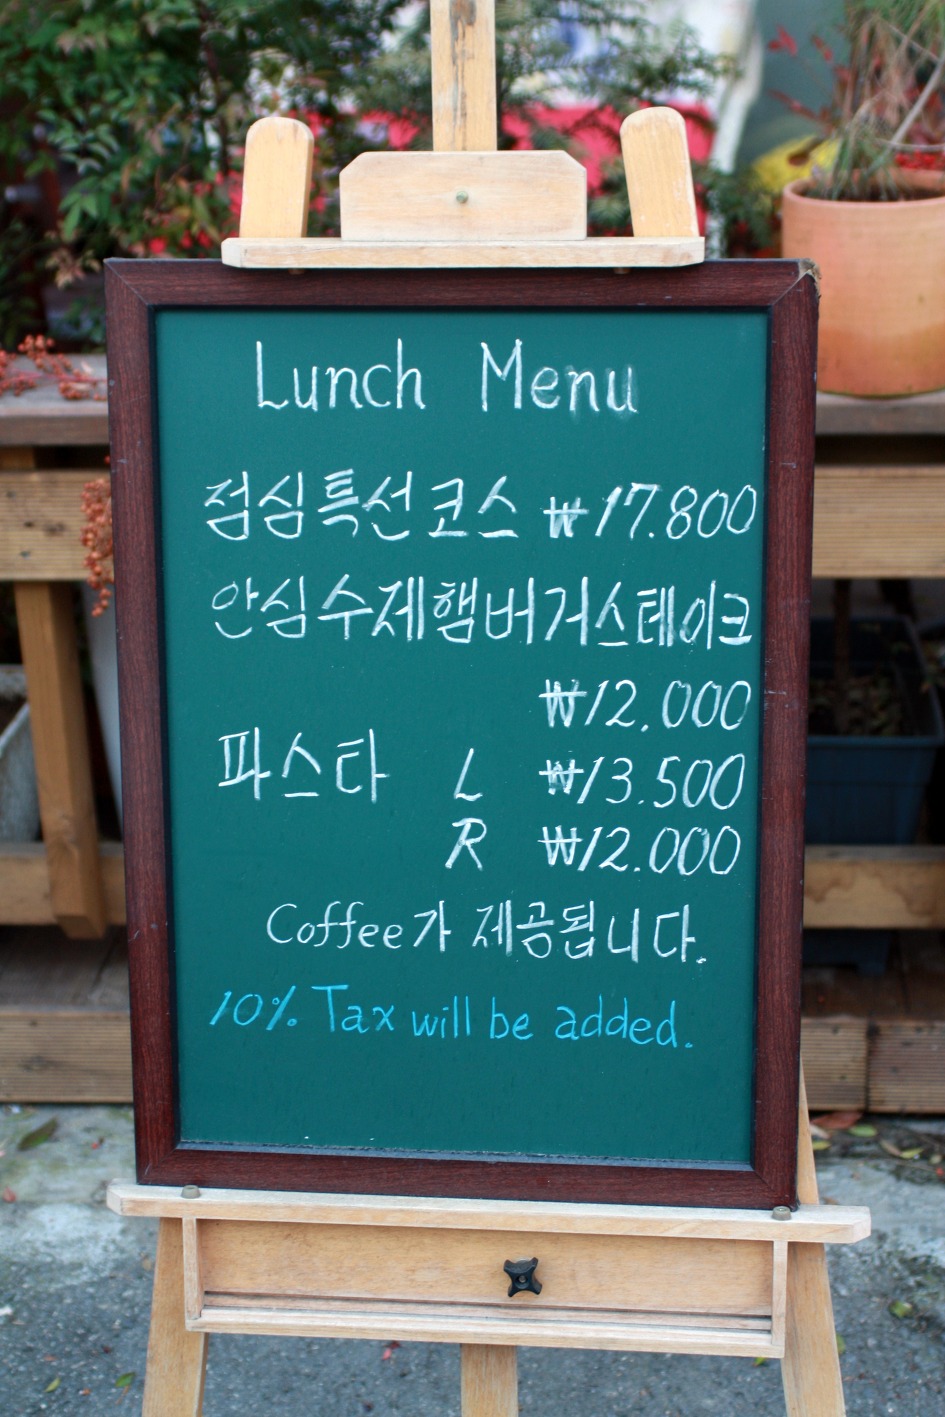 Lunch Menu
점심특선코스 ₩17.800
안심수제햄버거스테이크
₩12.000
파스타 L ₩13.500
R ₩12.000
Coffee가 제공됩니다.
10% Tax will be added.